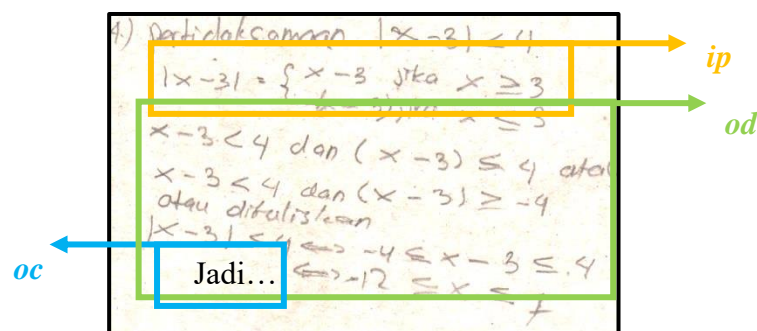 4.) Pertidaksamaan |x-3| < 4
ip
|x-3| = { x-3 jika x ≥ 3
x ≤ 3
od
x-3 < 4 dan (x-3) ≤ 4 atau
x-3 < 4 dan (x-3) ≥ -4
atau dituliskan
|x-3| < 4 ⟺ -4 ≤ x-3 ≤ 4
oc
Jadi... ⟺ -12 ≤ x ≤ 7